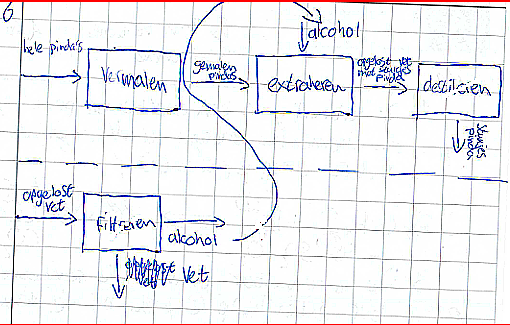 6
alcohol
hele pinda's
vermalen
gemalen
pindas
extraheren
opgelost vet
met stukjes
Pinda
destilleren
stukjes
Pinda's
opgelost
vet
Filtreren
alcohol
vet